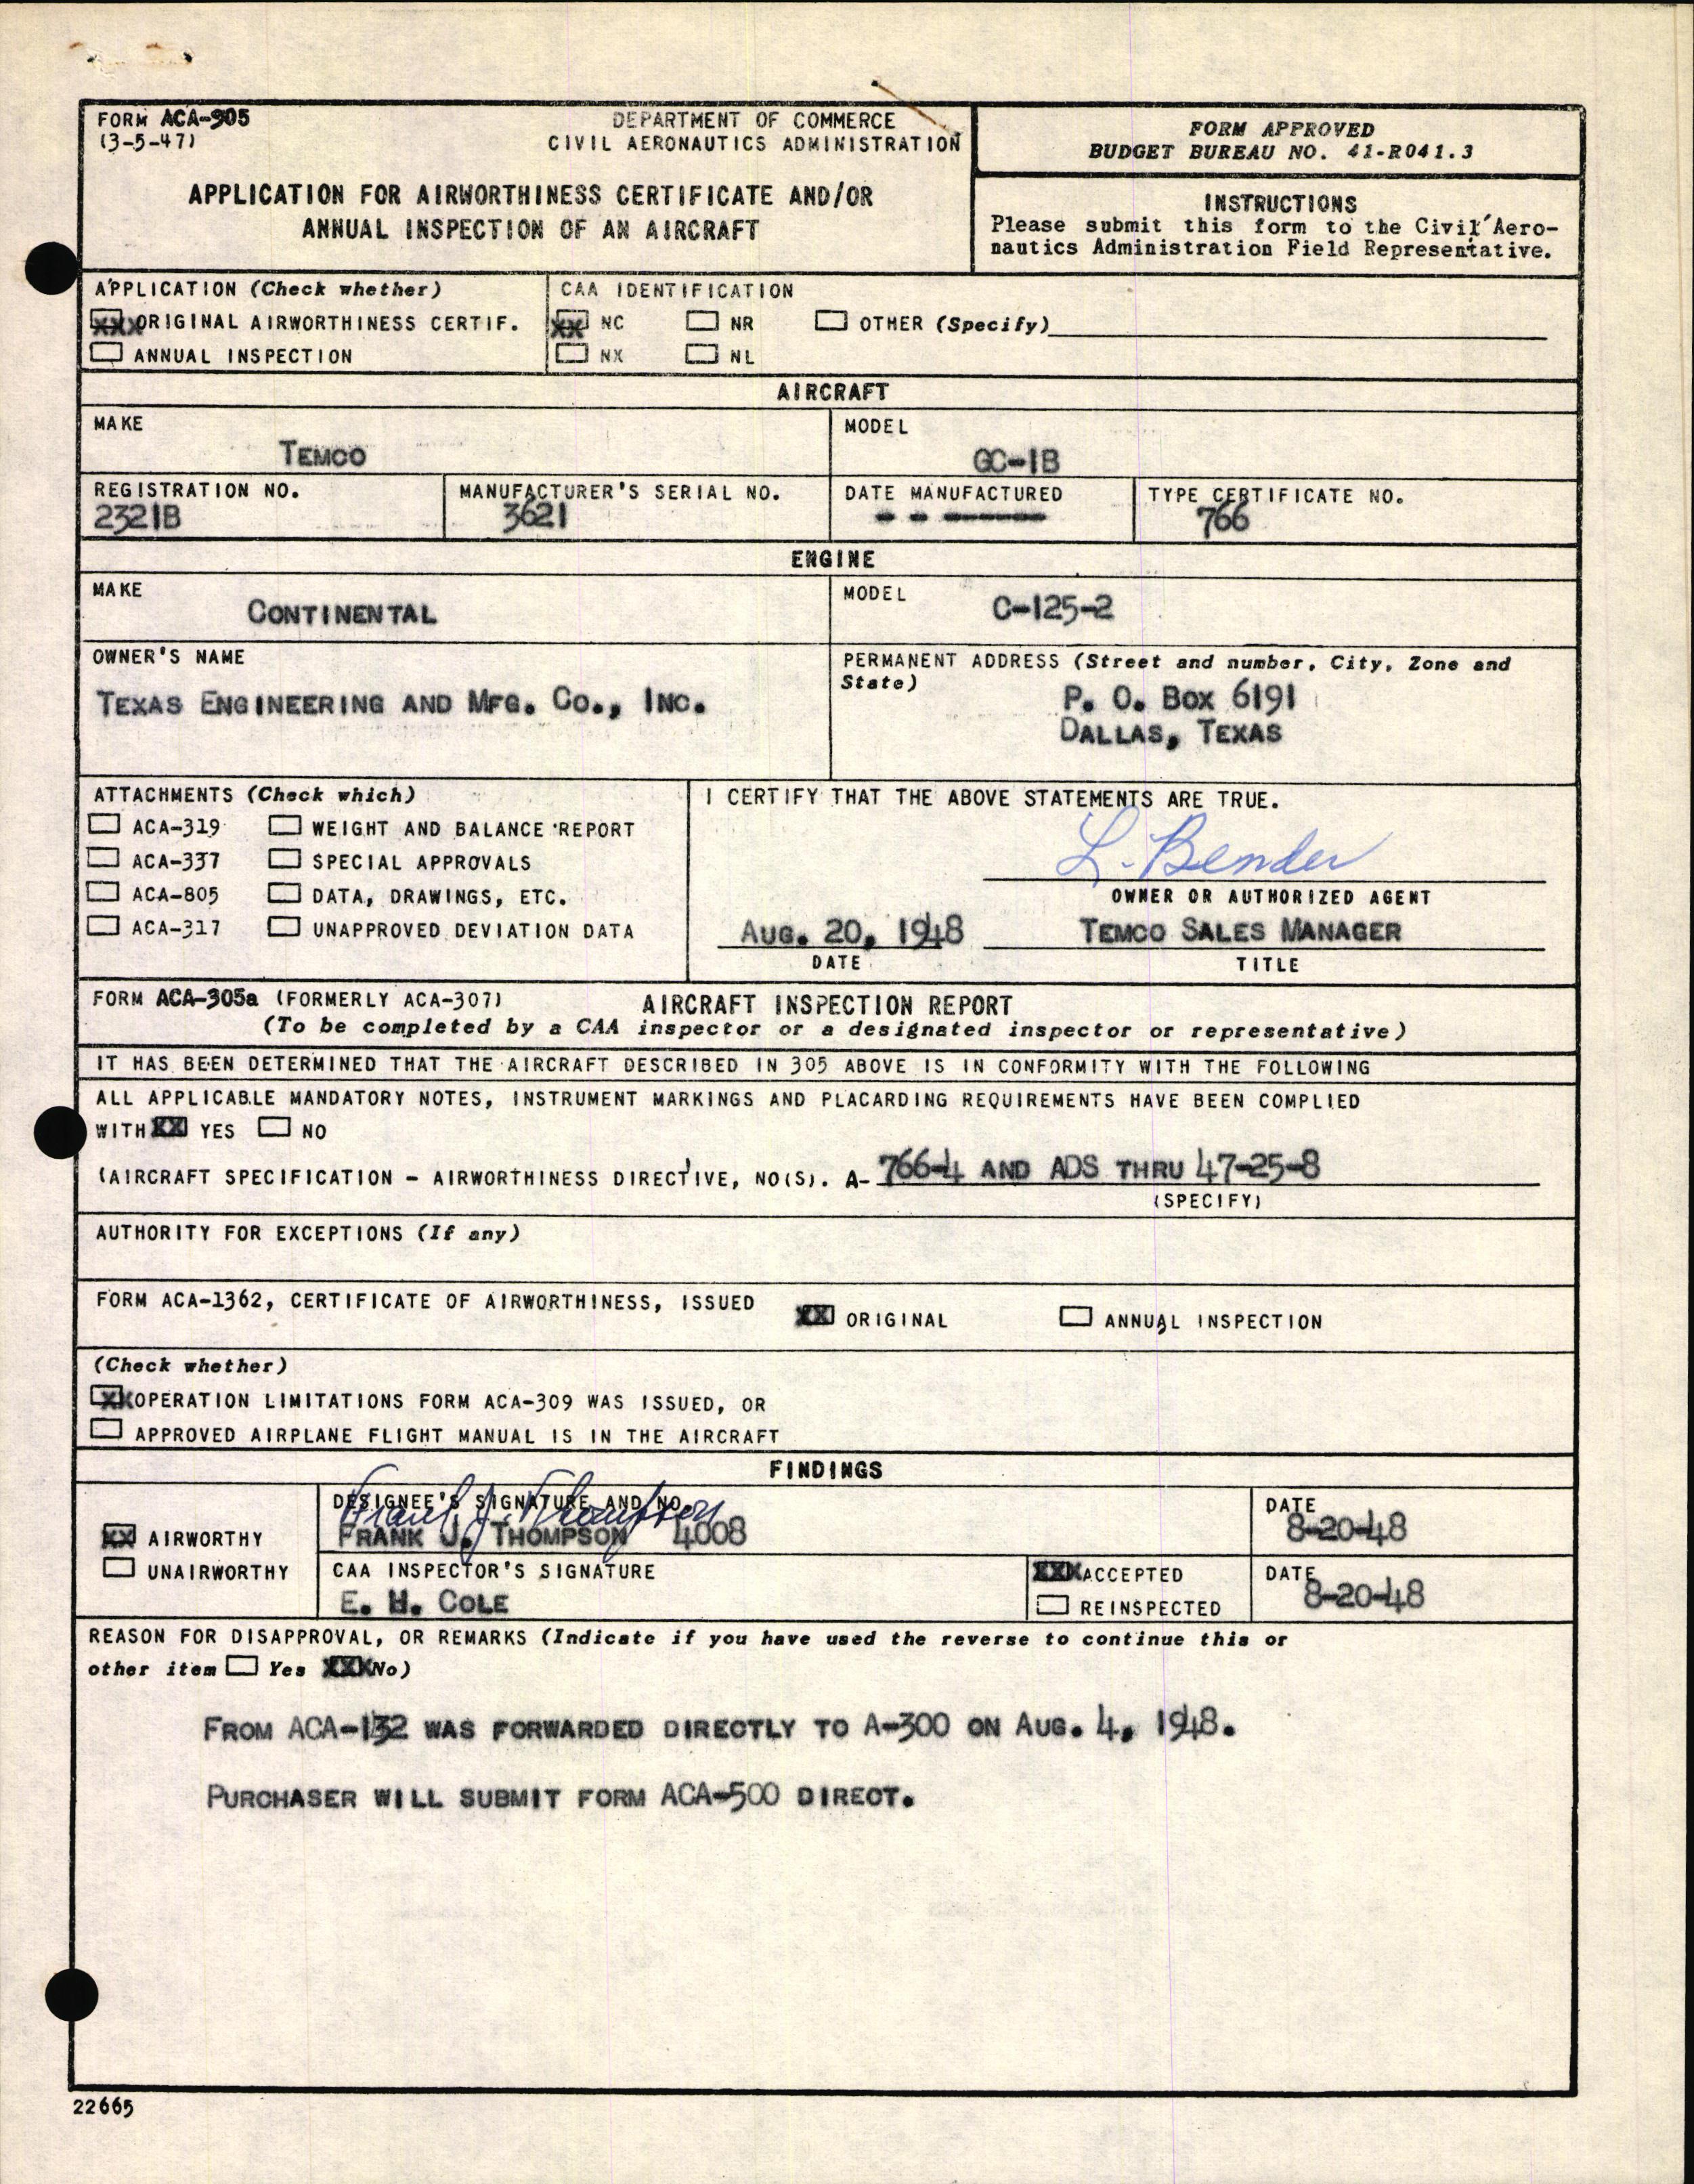 FORM ACA-305
(3-5-47)
DEPARTMENT OF COMMERCE
CIVIL AERONAUTICS ADMINISTRATION
APPLICATION FOR AIRWORTHINESS CERTIFICATE AND/OR
ANNUAL INSPECTION OF AN AIRCRAFT
FORM APPROVED
BUDGET BUREAU NO. 41-R041.3
INSTRUCTIONS
Please submit this form to the Civil Aero-
nautics Administration Field Representative.
APPLICATION (Check whether)
XXX ORIGINAL AIRWORTHINESS CERTIF.
ANNUAL INSPECTION
CAA IDENTIFICATION
XX NC NR OTHER (Specify)
NX NL
AIRCRAFT
MAKE
TEMCO
MODEL
GC-1B
REGISTRATION NO.
2321B
MANUFACTURER'S SERIAL NO.
3621
DATE MANUFACTURED
- - ------
TYPE CERTIFICATE NO.
766
ENGINE
MAKE
CONTINENTAL
MODEL
C-125-2
OWNER'S NAME
TEXAS ENGINEERING AND MFG. CO., INC.
PERMANENT ADDRESS (Street and number, City, Zone and
State)
P. O. BOX 6191
DALLAS, TEXAS
ATTACHMENTS (Check which)
ACA-319 WEIGHT AND BALANCE REPORT
ACA-337 SPECIAL APPROVALS
ACA-805 DATA, DRAWINGS, ETC.
ACA-317 UNAPPROVED DEVIATION DATA
I CERTIFY THAT THE ABOVE STATEMENTS ARE TRUE.
L. Bender
OWNER OR AUTHORIZED AGENT
AUG. 20, 1948 TEMCO SALES MANAGER
DATE TITLE
FORM ACA-305a (FORMERLY ACA-307) AIRCRAFT INSPECTION REPORT
(To be completed by a CAA inspector or a designated inspector or representative)
IT HAS BEEN DETERMINED THAT THE AIRCRAFT DESCRIBED IN 305 ABOVE IS IN CONFORMITY WITH THE FOLLOWING
ALL APPLICABLE MANDATORY NOTES, INSTRUMENT MARKINGS AND PLACARDING REQUIREMENTS HAVE BEEN COMPLIED
WITH XX YES NO
(AIRCRAFT SPECIFICATION - AIRWORTHINESS DIRECTIVE, NO(S). A- 766-4 AND ADS THRU 47-25-8
(SPECIFY)
AUTHORITY FOR EXCEPTIONS (If any)
FORM ACA-1362, CERTIFICATE OF AIRWORTHINESS, ISSUED XX ORIGINAL ANNUAL INSPECTION
(Check whether)
XX OPERATION LIMITATIONS FORM ACA-309 WAS ISSUED, OR
APPROVED AIRPLANE FLIGHT MANUAL IS IN THE AIRCRAFT
FINDINGS
XX AIRWORTHY
UNAIRWORTHY
DESIGNEE'S SIGNATURE AND NO.
Frank J. Thompson
FRANK J. THOMPSON 4008
DATE
8-20-48
CAA INSPECTOR'S SIGNATURE
E. H. COLE
XXX ACCEPTED
REINSPECTED
DATE
8-20-48
REASON FOR DISAPPROVAL, OR REMARKS (Indicate if you have used the reverse to continue this or
other item Yes XXX No)
FROM ACA-132 WAS FORWARDED DIRECTLY TO A-300 ON AUG. 4, 1948.
PURCHASER WILL SUBMIT FORM ACA-500 DIRECT.
22665